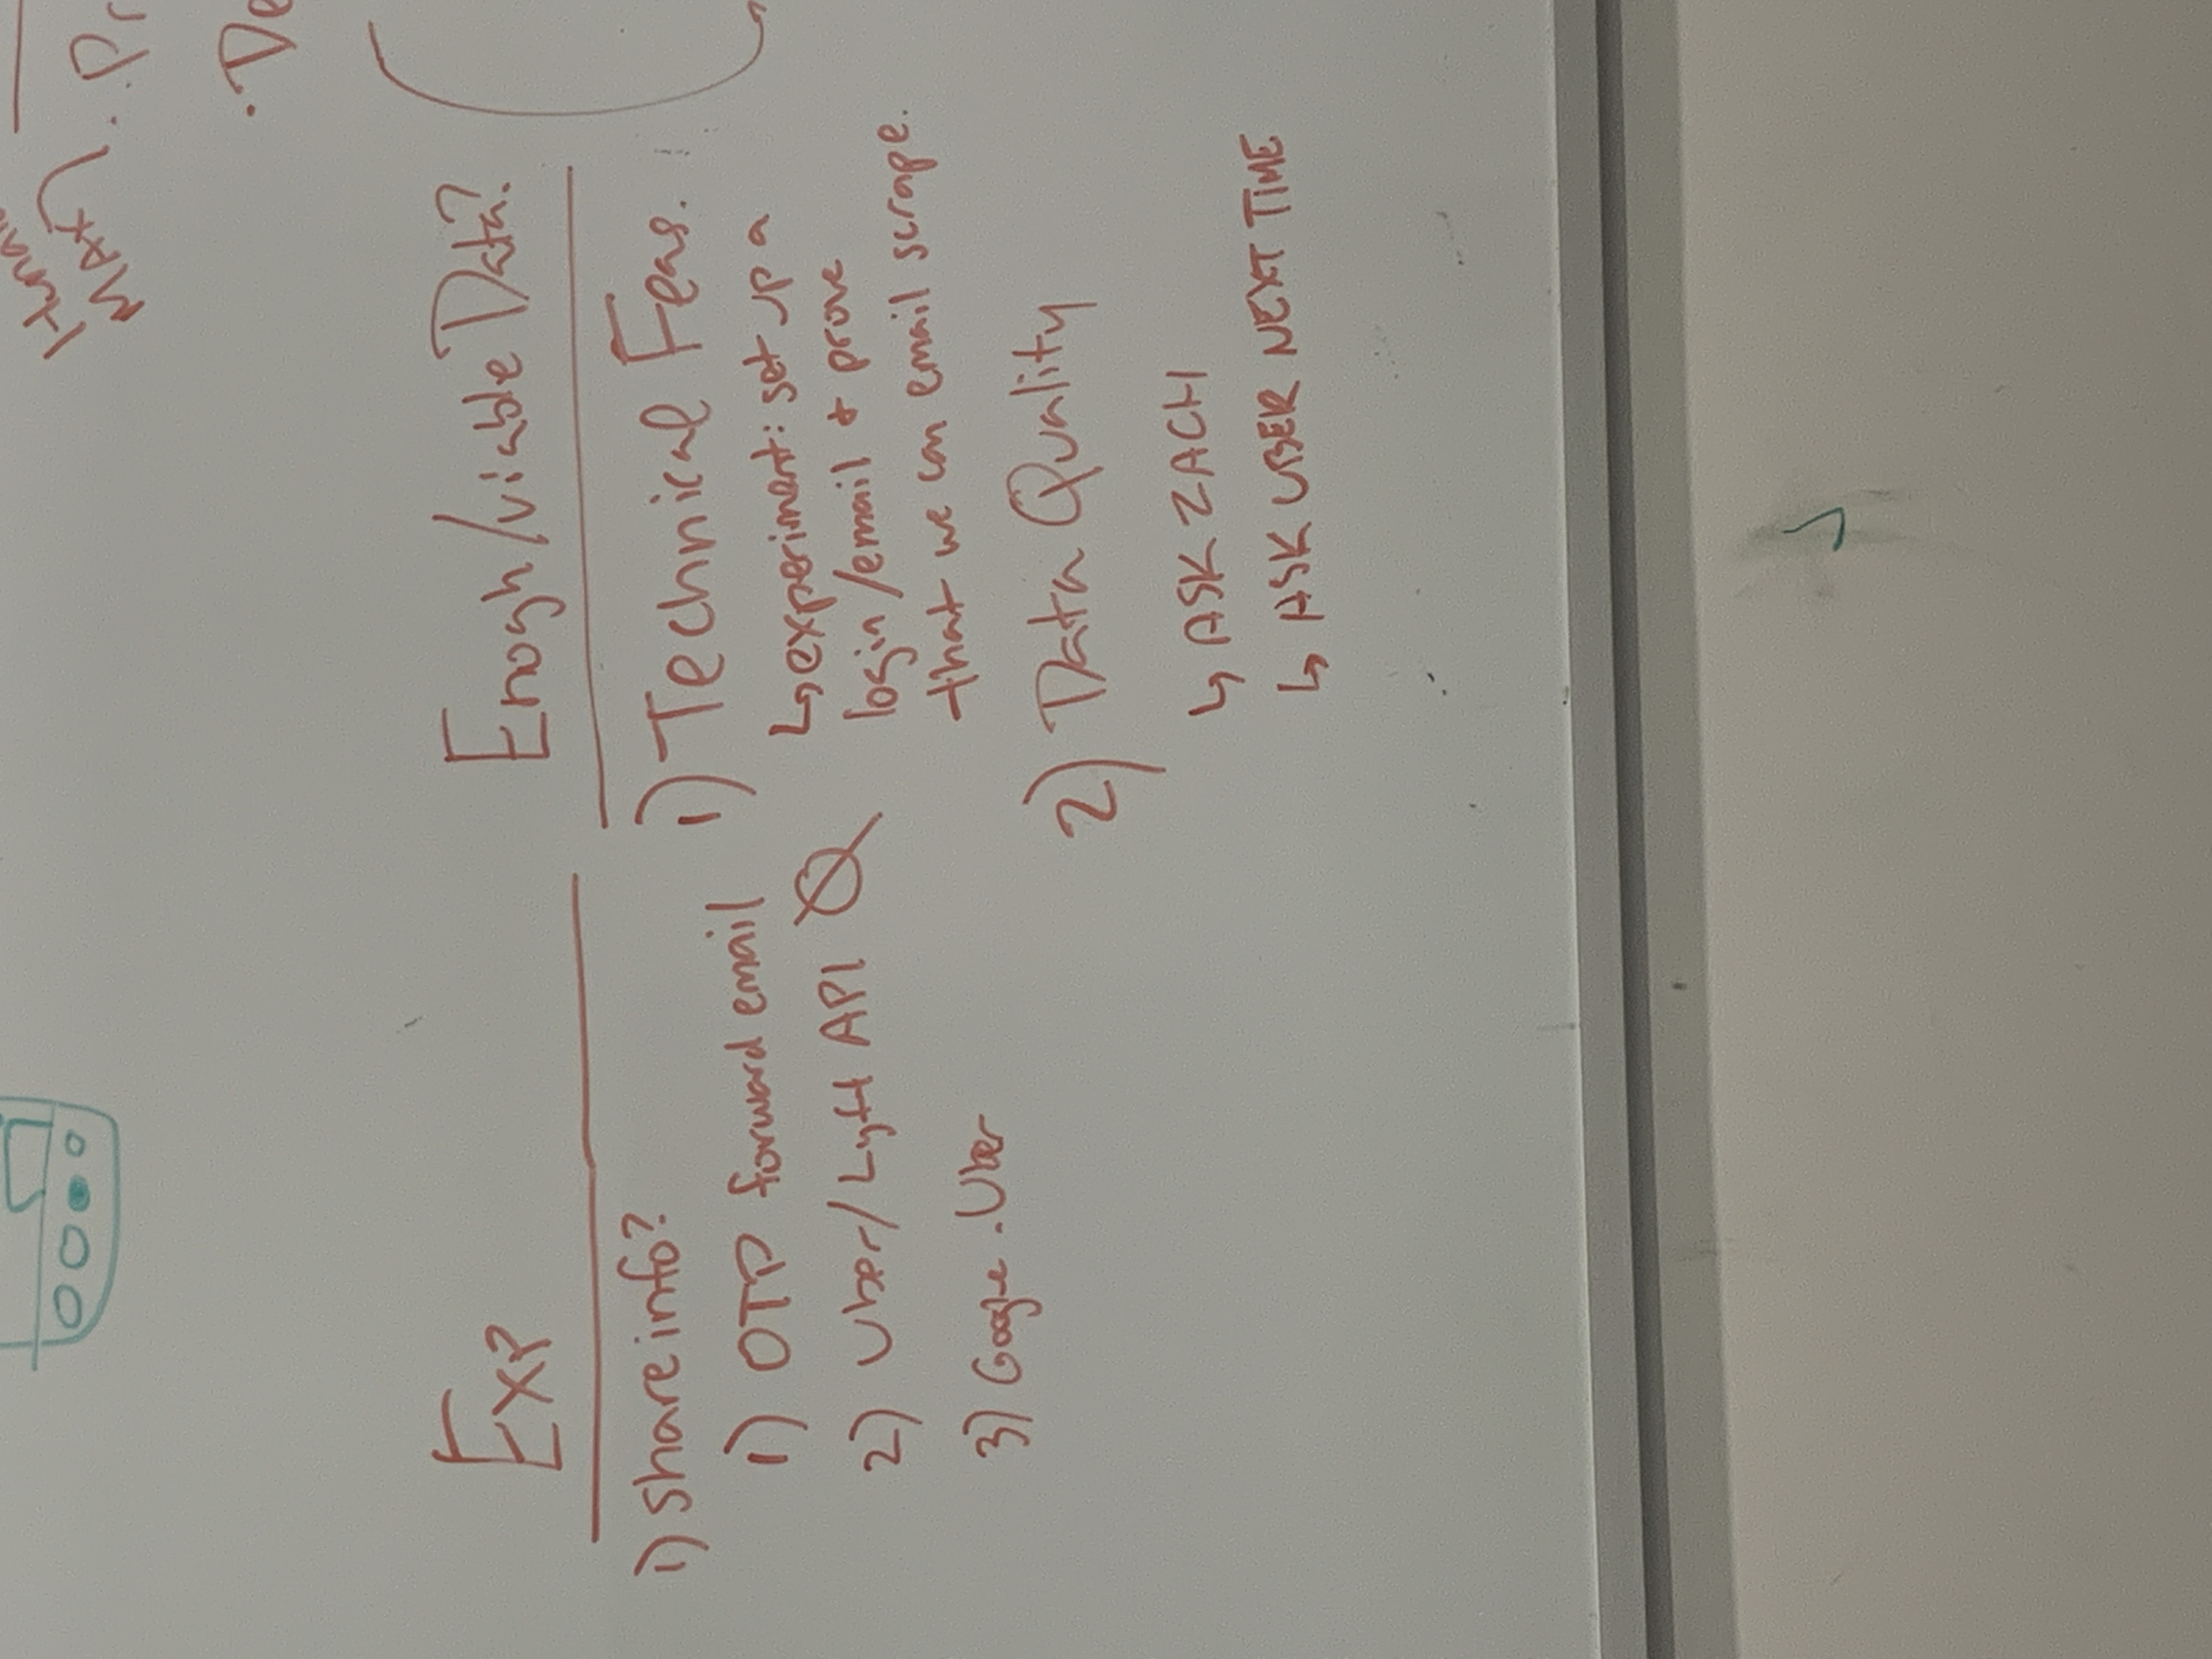 MAX
Exp
1) share info?
1) OTP forward email
2) Uber/Lyft API
3) Google.Uber
Enogh/viable Data?
1) Technical Feas.
↳ experiment: set up a
login/email + prove
that we can email scrape.
2) Data Quality
↳ ASK ZACH
↳ ASK UBER NEXT TIME